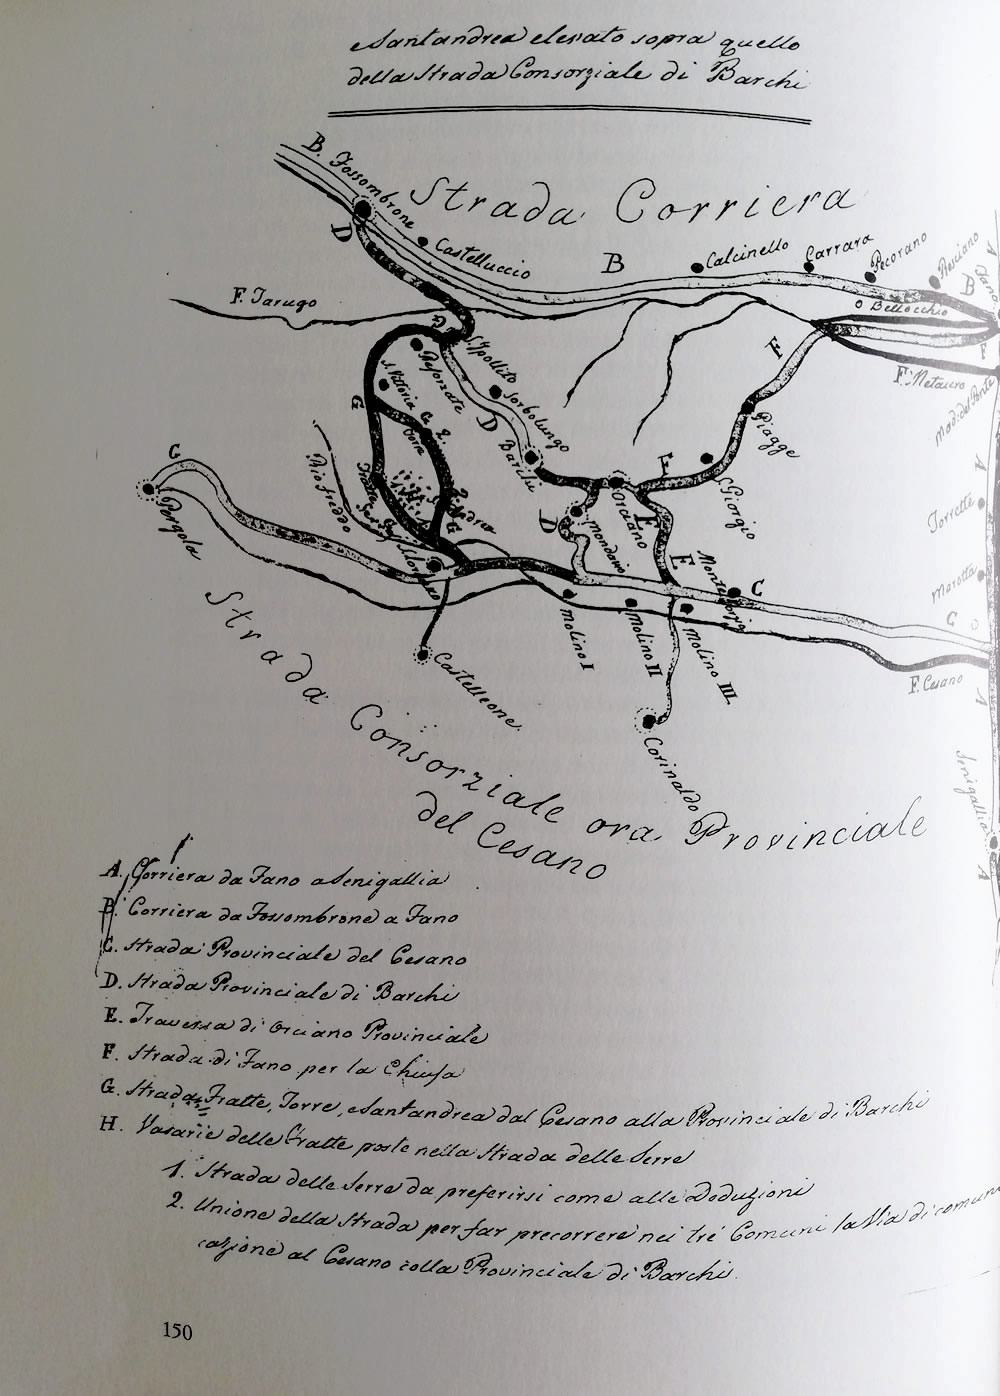 e Santandrea elevato sopra quello
della Strada Consorziale di Barchi
B. Fossombrone
Strada Corriera
D
Castelluccio
B
Calcinello
Carrara
Pecorano
Rosciano
A
Fano
B
Bellocchio
F. Tarugo
G
S. Ippolito
F
F
F. Metauro
Mad. del Ponte
Reforzate
S. Vittoria
G. 2.
Torre
G
Sorbolungo
D
Barchi
Piagge
E
S. Giorgio
Orciano
E
Mondavio
D
C
Pergola
Rio freddo
Fratte
S. Andrea
G
S. Lorenzo
A
Torrette
Marotta
E
Monteporzio
C
C
Molino I
Molino II
Molino III
F. Cesano
A
Castelleone
Corinaldo
Senigallia
A
Strada Consorziale ora Provinciale
del Cesano
A. Corriera da Fano a Senigallia
B. Corriera da Fossombrone a Fano
C. Strada Provinciale del Cesano
D. Strada Provinciale di Barchi
E. Traversa di Orciano Provinciale
F. Strada di Fano per la Chiusa
G. Strada Fratte, Torre, e Santandrea dal Cesano alla Provinciale di Barchi
H. Vasarie delle Fratte poste nella Strada delle Serre
1. Strada delle Serre da preferirsi come alle Deduzioni
2. Unione della Strada per far precorrere nei tre Comuni la Via di comuni
cazione al Cesano colla Provinciale di Barchi.
150